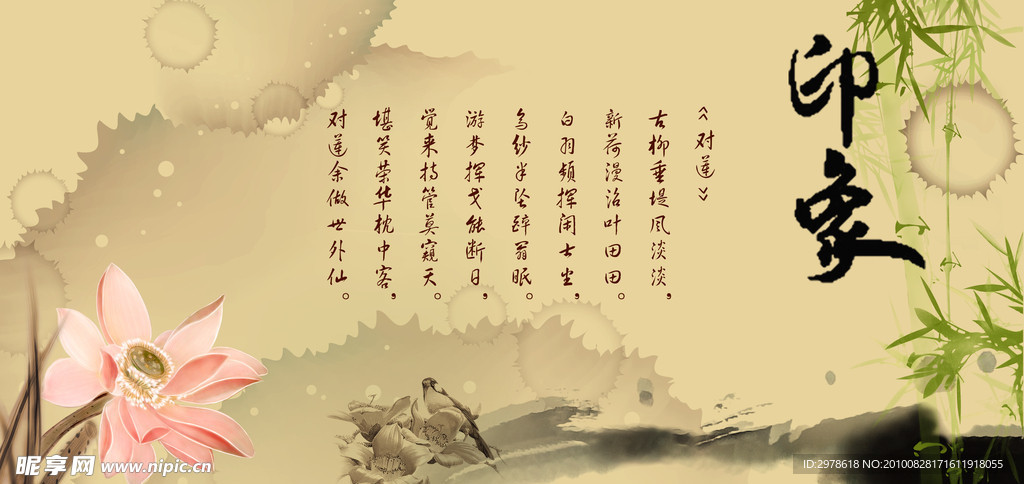 印象
《对莲》
古柳垂堤风淡淡，
新荷漫沼叶田田。
白羽频挥闲士坐，
乌纱半坠醉翁眠。
游梦挥戈能断日，
觉来持管莫窥天。
堪笑荣华枕中客，
对莲余做世外仙。
昵享网 www.nipic.cn
ID:2978618 NO:20100828171611918055